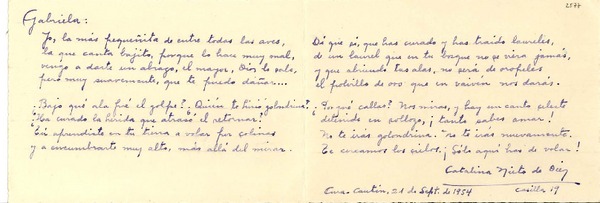 2577
Gabriela:
Yo, la más pequeñita de entre todas las aves,
la que canta bajito, porque lo hace muy mal,
vengo a darte un abrazo, el mayor, Dios lo sabe,
pero muy suavemente, que te puedo dañar...
¿Bajo qué ala fué el golpe? ¿Quién te hirió golondrina?
¿Ha curado la herida que atrasó el retornar?
Tú aprendiste en tu tierra a volar por colinas
y a encumbrarte muy alto, más allá del mirar.
Dí que sí, que has curado y has traído laureles,
de un laurel que en tu bosque no se viera jamás,
y que abriendo tus alas, no será de oropeles
el polvillo de oro que en vaivén nos darás.
¿Por qué callas? Nos miras, y hay un canto selecto
detenido en sollozo, ¡tanto sabes amar!
No te irás golondrina. No te irás nuevamente.
Te cercamos los cielos. ¡Sólo aquí has de volar!
Catalina Nieto de Díez
Cura-Cautín, 21 de Sept. de 1954
Casilla 19